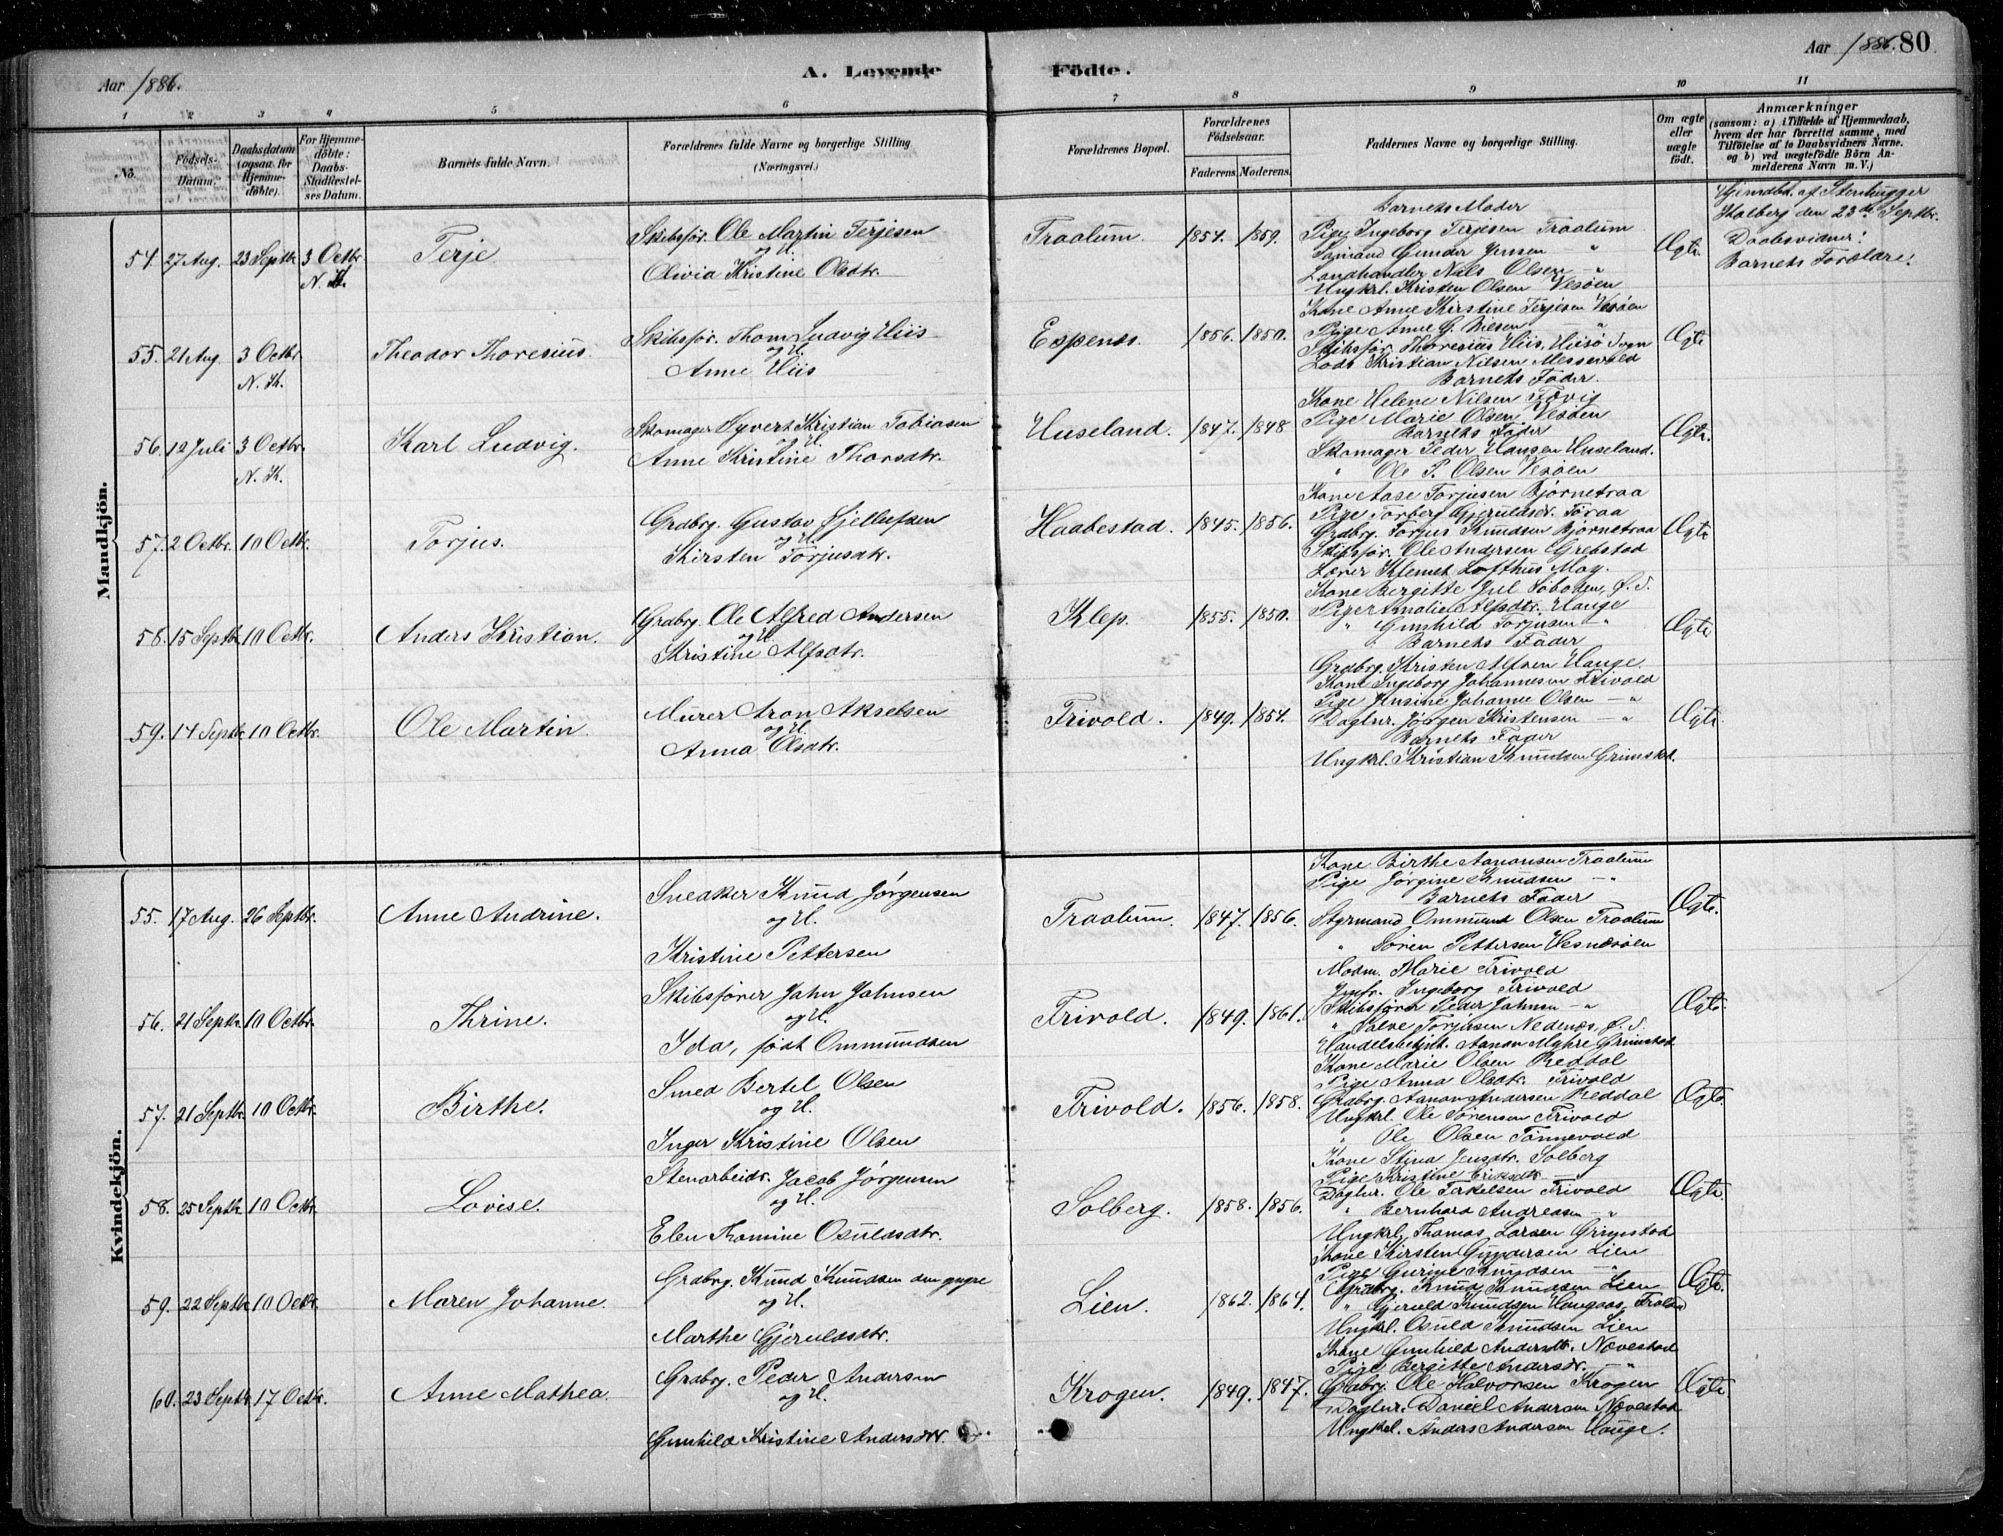 Aar 1886.
A. Levende Födte.
Aar 1886. 80
1 2 3 4 5 6 7 8 9 10 11
No.
Födsels-Datum.
Daabsdatum (ogsaa for Hjemmedöbte).
For Hjemmedöbte: Daabs-Stadfæstelses Datum.
Barnets fulde Navn.
Forældrenes fulde Navne og borgerlige Stilling (Næringsvei.)
Forældrenes Bopæl.
Forældrenes Födselsaar.
Faderens. Moderens.
Faddernes Navne og borgerlige Stilling.
Om ægte eller uægte födt.
Anmærkninger (saasom: a) i Tilfælde af Hjemmedaab, hvem der har forrettet samme, med Tilföielse af to Daabsvidners Navne. og b) ved uægtefödte Börn Anmelderens Navn m. V.)
Mandkjön.
54. 27 Aug. 23 Septbr. 3 Octbr. N. K.
Terje.
Skibsfør. Ole Martin Terjesen
og H.
Olivia Kristine Olsdtr.
Traalum. 1854. 1859.
Barnets Moder
Pige Ingeborg Terjesen Traalum
Sømand Gunder Jensen "
Landhandler Nils Olsen "
Ungkrl. Kristen Olsen Vesøen
Ægte.
Hjemdbt. af Stenhugger
Kalberg den 23de Septbr.
Daabsvidner:
Barnets Forældre.
55. 21 Aug. 3 Octbr. N. K.
Theodor Thoresius.
Skibsfør. Thom Ludvig Hiis
og H.
Anne Hiis
Espenes. 1856. 1850.
Kone Anne Kirstine Terjesen Vesøen
Pige Anne G. Nielsen "
Skibsfør. Thoresius Hiis, Hisø Sogn
Lods Kristian Nilsen Messevold
Barnets Fader.
Ægte
56. 12 Juli 3 Octbr. N. K.
Karl Ludvig.
Skomager Syvert Kristian Tobiasen
og H.
Anne Kristine Thorsdtr.
Huseland. 1847. 1848
Kone Helene Nilsen Fævig
Pige Marie Olsen Vesøen
Barnets Fader
Skomager Peder Hansen Huseland.
" Ole P. Olsen Vesøen
Ægte.
57. 2 Octbr. 10 Octbr.
Torjus.
Grdbrg. Gustav Fjellufsen
og H.
Kirsten Torjusdtr.
Haabestad. 1845. 1856.
Kone Aase Torjusen Bjørnetraa
Pige Torberg Gjeruldsdr. Foraa
Grdbrg. Torjus Knudsen Bjørnetraa
Skibsfør. Ole Andersen Grebstad
Lærer Klemet Lofthus Mag.
Ægte
58. 15 Septbr. 10 Octbr.
Anders Kristian.
Grdbrg. Ole Alfred Andersen
og H.
Kristine Alfsdtr.
Klep. 1855. 1850.
Kone Bergitte Jul Søboden, Ø. S.
Pige Amalie Alfsdtr. Hauge
" Gunhild Torjusen "
Barnets Fader
Grdbrg. Kristen Alfsen Hauge.
Ægte
59. 14 Septbr. 10 Octbr.
Ole Martin.
Murer Aron Akselsen
og H.
Anna Olsdtr.
Frivold. 1849. 1854.
Kone Ingeborg Johannesen Frivold
Pige Jensine Johanne Olsen "
Dagløn. Jørgen Kristensen "
Barnets Fader
Ungkrl. Kristian Knudsen Grimstd.
Ægte
Kvindekjön.
55. 17 Aug. 26 Septbr.
Anne Andrine.
Snedker Knud Jørgensen
og H.
Kristine Pettersen
Traalum. 1847. 1856.
Kone Birthe Aanonsen Traalum
Pige Jørgine Knudsen "
Barnets Fader
Styrmand Ommund Olsen Traalum
" Søren Pettersen Hesnesøen
Ægte.
56. 21 Septbr. 10 Octbr.
Thrine.
Skibsfører John Johnsen
og H.
Ida, født Ommundsen
Frivold. 1849. 1861.
Madm. Marie Frivold
Jmfr. Ingeborg Frivold
Skibsfører Peder Johnsen "
" Salve Torjusen Nedenes, Ø. S.
Handelsbetjnt. Aanon Myhre Grimstad
Ægte.
57. 21 Septbr. 10 Octbr.
Birthe.
Smed Bertel Olsen
og H.
Inger Kristine Olsen
Frivold. 1856. 1858.
Kone Marie Olsen Reddal
Pige Anna Olsdtr. Frivold
Grdbrg. Aanon Andersen Reddal
Ungkrl. Ole Sørensen Frivold
" Ole Olsen Tønnevold
Ægte.
58. 25 Septbr. 10 Octbr.
Lovise.
Stenarbeidr. Jacob Jørgensen
og H.
Elen Thomine Osuldsdtr.
Solberg. 1858. 1856.
Kone Stina Jensdtr. Solberg
Pige Kristine Eriksdtr. "
Dagløn. Ole Terkelsen Frivold
" Bernhard Andreasen "
Ungkrl. Thomas Larsen Grimstad
Ægte.
59. 22 Septbr. 10 Octbr.
Maren Johanne.
Grdbrg. Knud Knudsen den yngre
og H.
Marthe Gjeruldsdtr.
Lien. 1862. 1864.
Kone Kirsten Gundersen Lien
Pige Gurine Knudsen "
Grdbrg. Knud Knudsen Lien
" Gjeruld Knudsen Haugaas, Froland
Ungkrl. Osuld Knudsen Lien
Ægte.
60. 23 Septbr. 17 Octbr.
Anne Mathea.
Grdbrg. Peder Andersen
og H.
Gunhild Kristine Andersdtr.
Krogen. 1849. 1847.
Kone Gunhild Andersdtr. Nævestad
Pige Bergitte Andersdr. "
Grdbrg. Ole Halvorsen Krogen
Dagløn. Daniel Andersen Nævestad
Ungkrl. Anders Andersen Hauge.
Ægte